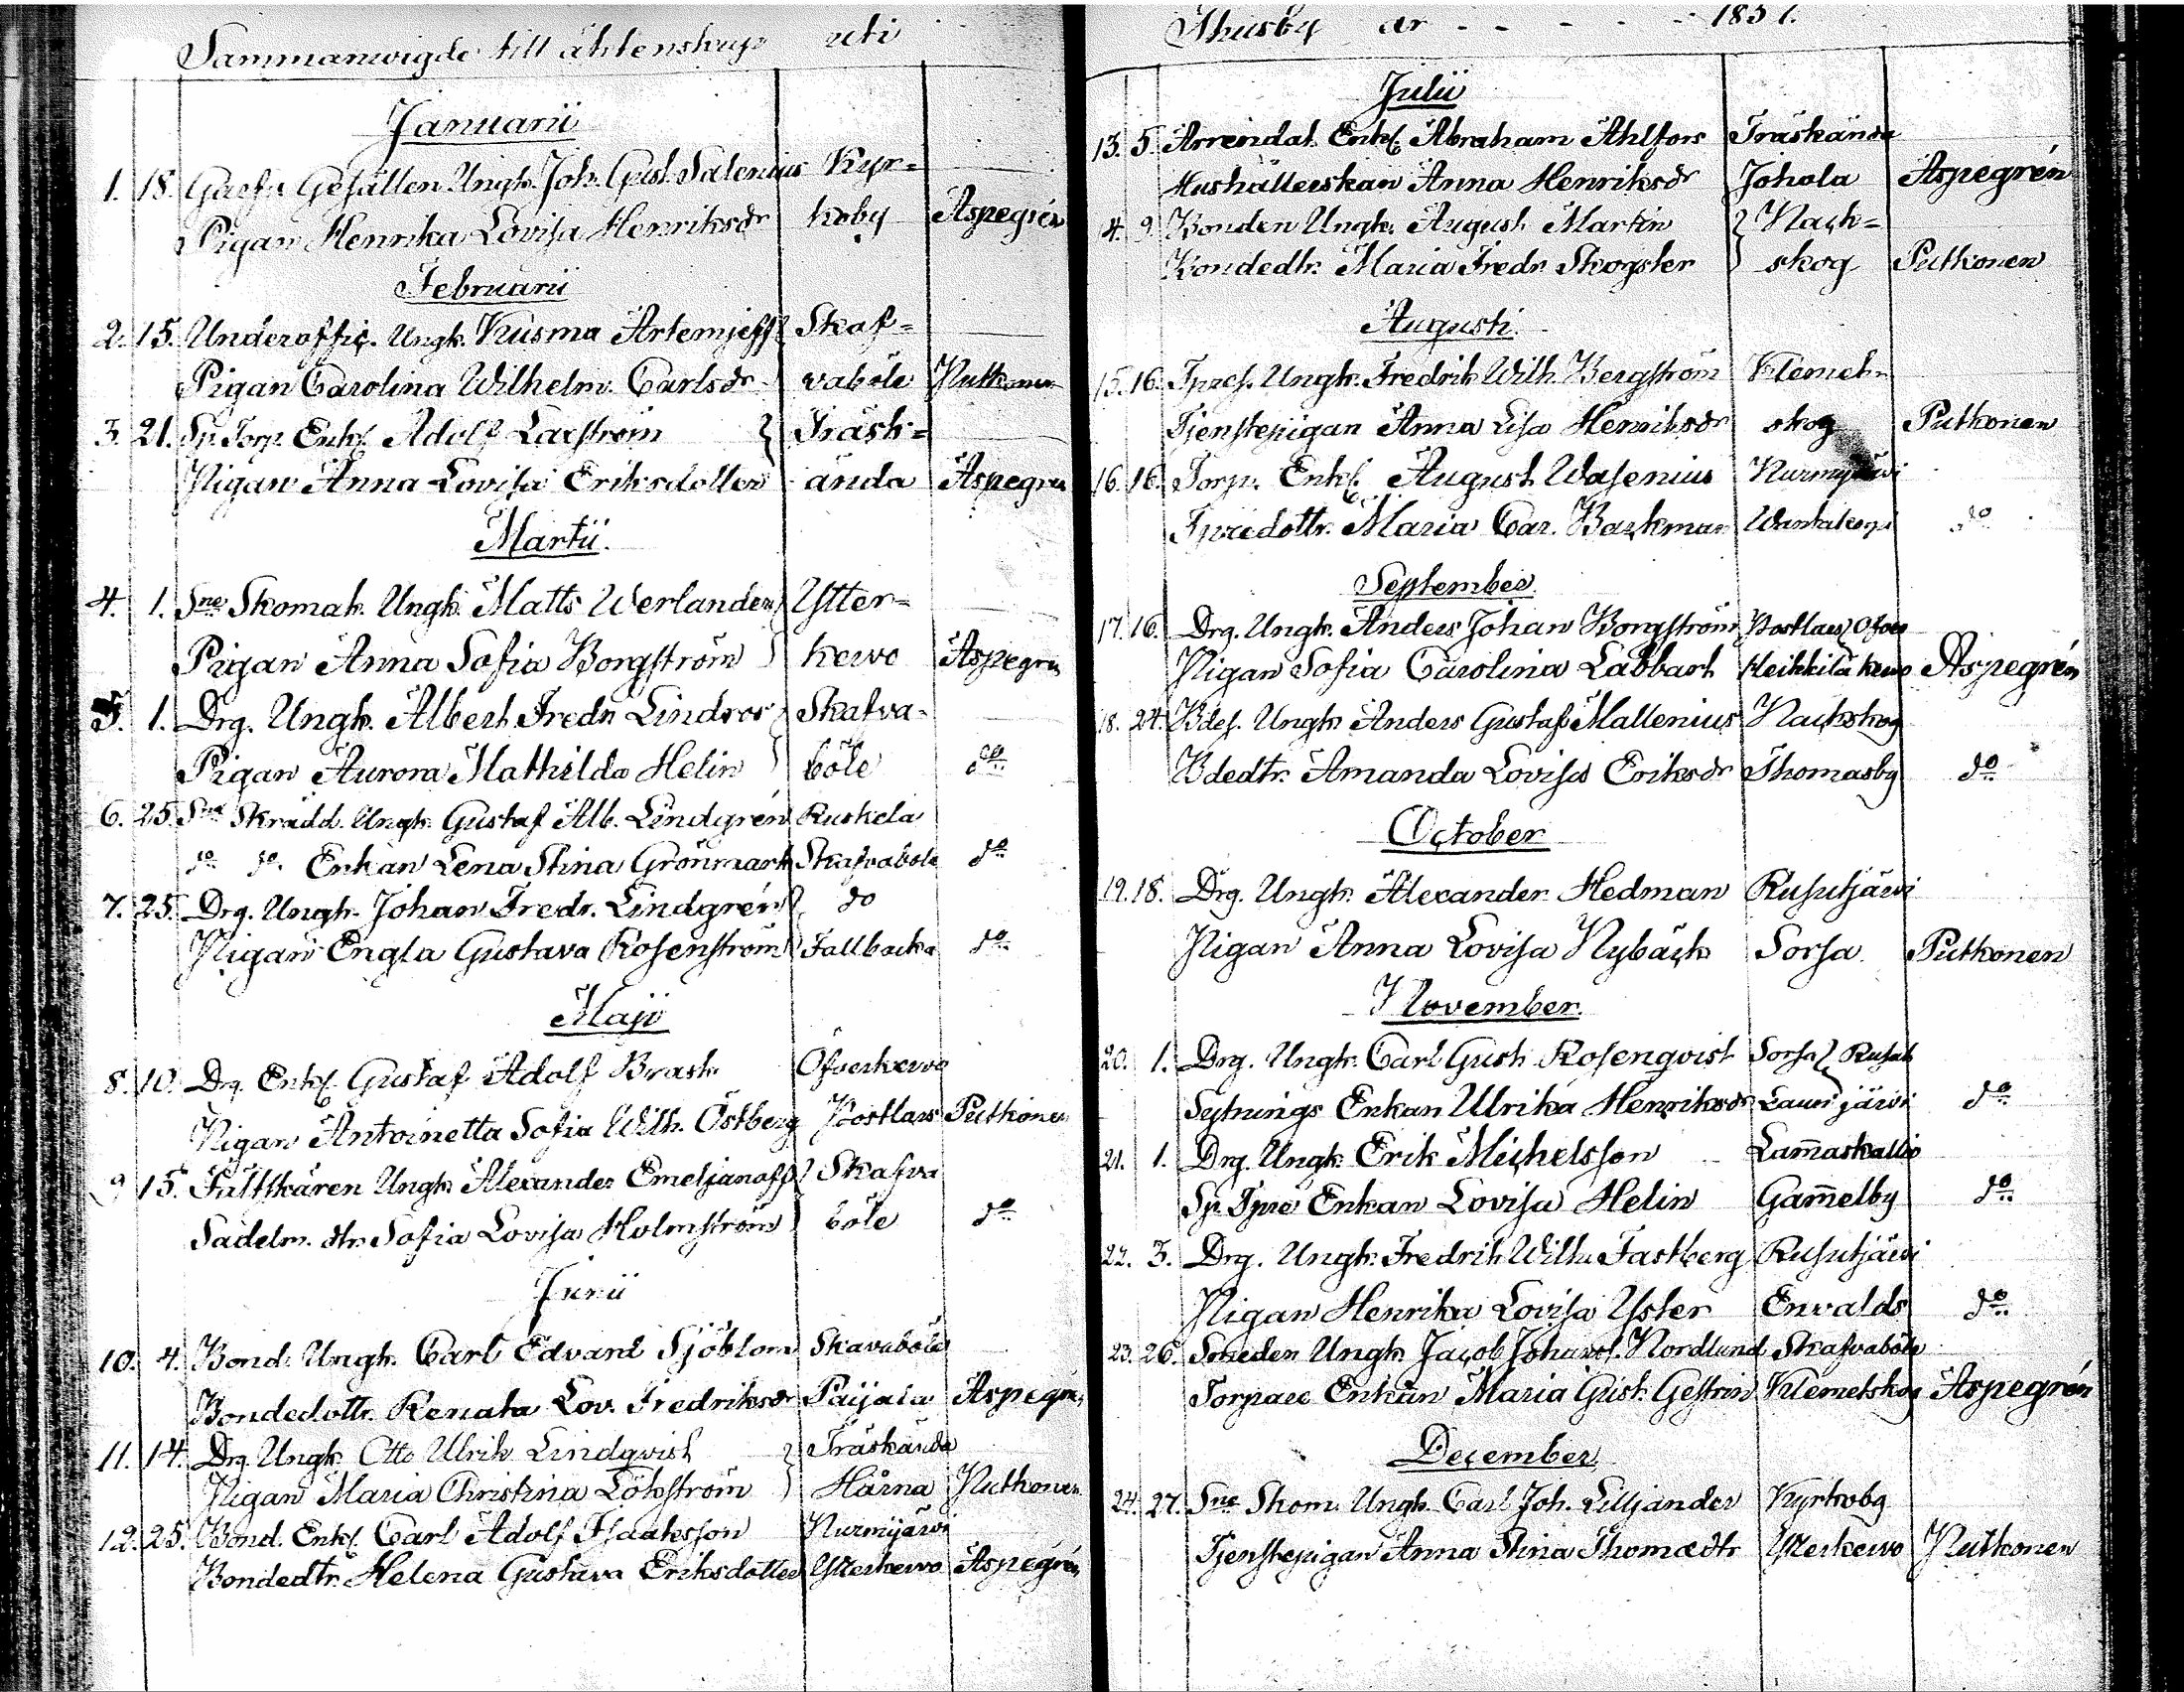 Sammanwigde till ächtenskap uti
Januarii
1. 18. Gesällen Ungk. Joh. Gust. Salenius Kyr=
Pigan Henrika Lovisa Henriksdr koby Aspegrén
Februarii
2. 15. Underoffic. Ungk. Kusma Artemjeff Skaf=
Pigan Carolina Wilhelm. Carlsdr vaböle Putkonen
3. 21. Sp. Torp. Enkl. Adolf Lacström Träsk=
Pigan Anna Lovisa Eriksdotter ända Aspegrén
Martii.
4. 1. Sne Skomak. Ungk. Matts Werlander Ytter=
Pigan Anna Sofia Borgström kervo Aspegrén
5. 1. Drg. Ungk. Albert Fredr. Lindros Skafva-
Pigan Aurora Mathilda Helin böle do
6. 25. Sne Skrädd. Ungk. Gustaf Alb. Lindgrén Ruskela
do do. Enkan Lena Stina Grönmark Skafvaböle do
7. 25. Drg. Ungk. Johan Fredr. Lindgrén do
Pigan Engla Gustava Rosenström Fallbacka do
Maji
8. 10. Drg. Enkl. Gustaf Adolf Brask Öfverkervo
Pigan Antoinetta Sofia Wilh. Östberg Postlars Putkonen
9 15. Fältskären Ungk. Alexander Emeljanoff Skafva
Sadelm. dtr Sofia Lovisa Holmström böle do
Junii
10. 4. Bond. Ungk. Carl Edvard Sjöblom Skavaböle
Bondedottr. Renata Lov. Fredriksdr Paijala Aspegrén
11. 14. Drg. Ungk. Otto Ulrik Lindqvist Träskända
Pigan Maria Christina Löfström Härna Putkonen
12. 25. Bond. Enkl. Carl Adolf Isaaksson Nurmijärvi
Bondedtr. Helena Gustava Eriksdotter Ytterkervo Aspegrén
Thusby år - - - - - 1857.
Julii
13. 5. Arrendat. Enkl. Abraham Ahlfors Träskända
Hushållerskan Anna Henriksdr Johola Aspegrén
4. 9. Bonden Ungk. August Martin Nack=
Bondedtr. Maria Fredr. Skogster skog Putkonen
Augusti.
15. 16. Tpres. Ungk. Fredrik Wilh. Bergström Klemet-
Tjenstepigan Anna Lisa Henriksdr skog Putkonen
16. 16. Torp. Enkl. August Wasenius Nurmijärvi
Tpredottr. Maria Car. Backman do
September
17. 16. Drg. Ungk. Anders Johan Borgström Postlars Öfver
Pigan Sofia Carolina Labbart Heikkilä kervo Aspegrén
18. 24. Bdes. Ungk. Anders Gustafs. Mallenius Nackskog
Bdedtr. Amanda Lovisa Eriksdr Thomasby do
October
19. 18. Drg. Ungk. Alexander Hedman Rusutjärvi
Pigan Anna Lovisa Nybäck Sorsa. Putkonen
November
20. 1. Drg. Ungk. Carl Gust. Rosenqvist Sorsa Rusut
Sytnings Enkan Ulrika Henriksdr Lauri järvi do
21. 1. Drg. Ungk. Erik Michelsson Lam̄askallio
Sp. Tpre Enkan Lovisa Helin Gam̄elby do
22. 3. Drg. Ungk. Fredrik Wilh. Fastberg Rusutjärvi
Pigan Henrika Lovisa Yster Envalds do
23. 26. Smeden Ungk. Jacob Johans. Nordlund Skafvaböle
Torpare Enkan Maria Gust. Gestrin Klemetskog Aspegrén
December
24. 27. Sne Skom. Ungk. Carl Joh. Liljander Kyrkoby
Tjenstepigan Anna Stina Thomædtr Ytterkervo Putkonen